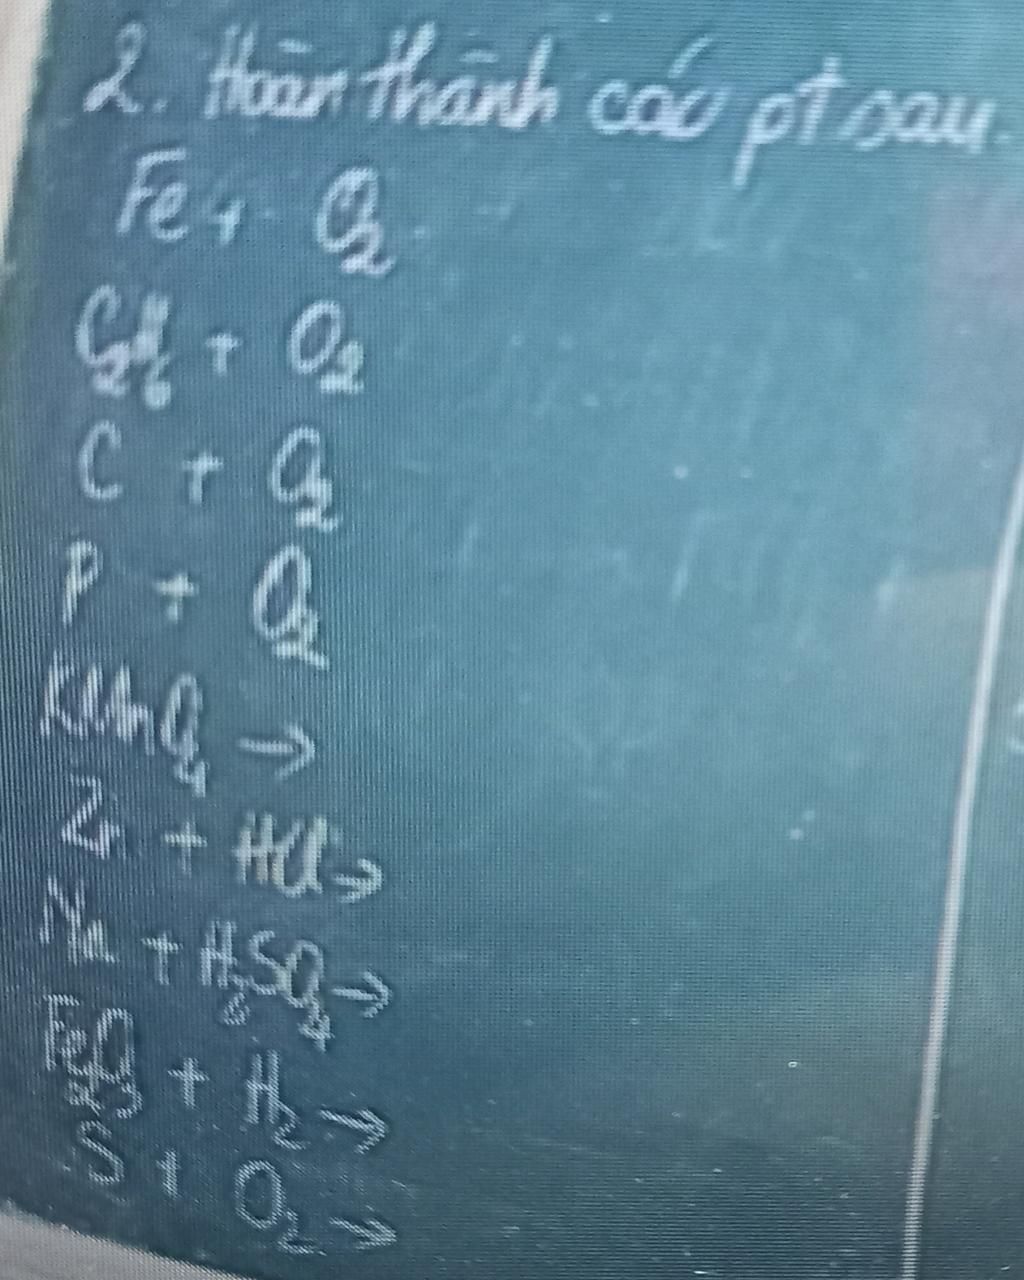 2. Hoàn thành các pt sau.
Fe + O₂
C₂H₆ + O₂
C + O₂
P + O₂
KMnO₄ →
Zn + HCl →
Na + H₂SO₄ →
Fe₂O₃ + H₂ →
S + O₂ →